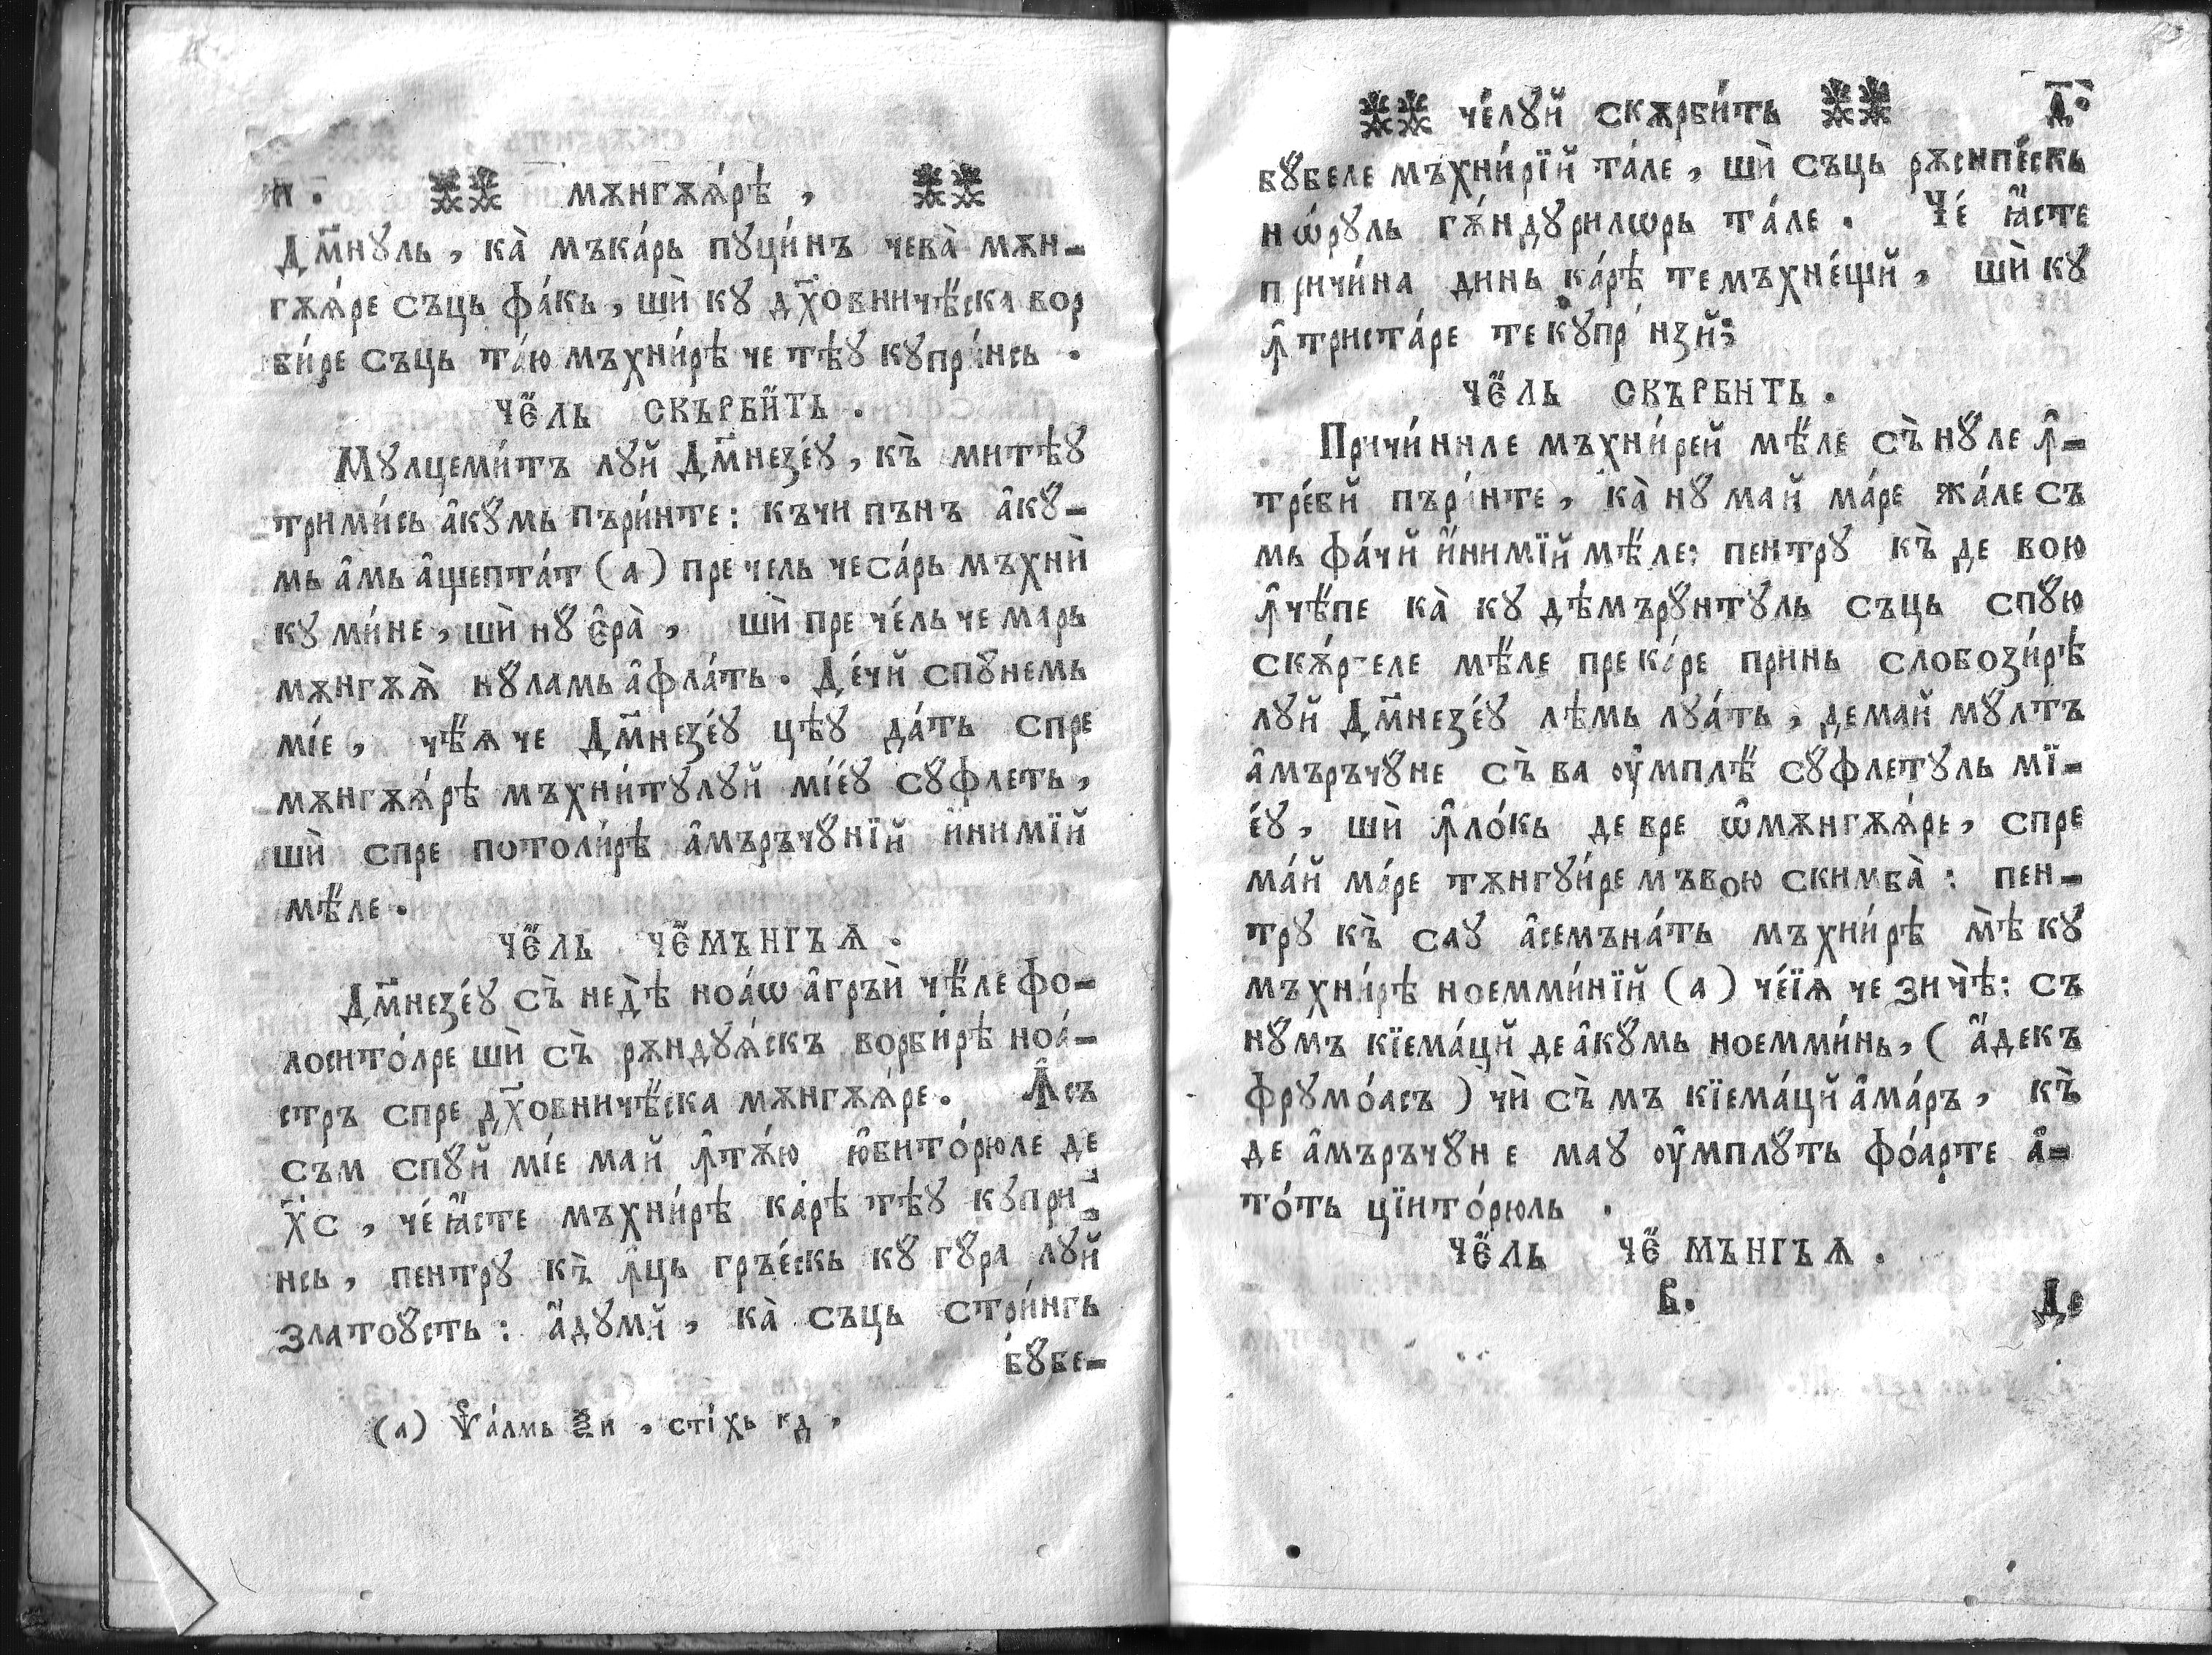 н. мѫнгѫѧ́рѣ,
Дм҃нꙋль, ка̀ мъка́рь пꙋци́нъ чева̀ мѫн-
гѫѧ́ре съць фа́кь, шѝ кꙋ дх҃овничѣ́ска вор
би́ре съць та́ю мъхни́рѣ че тѣꙋ кꙋпри́нсь.
чє́ль скърби́ть.
Мꙋлцеми́тъ лꙋй Дм҃незе́ꙋ, къ̀ митѣꙋ
трими́сь а҆кꙋмь пъри́нте: къчи пънъ а҆кꙋ-
мь а҆мь а҆щепта́т (а) пре чель чеса́рь мъхнѝ
кꙋ ми́не, шѝ нꙋ є҆ра̀, шѝ пре че́ль че марь
мѫнгѫѧ̀ нꙋламь а҆фла́ть. Де́чй спꙋнемь
мі́е, чѣѧ че Дм҃незе́ꙋ цѣꙋ да́ть спре
мѫнгѫѧ́рѣ мъхни́тꙋлꙋй міе́ꙋ сꙋфлеть,
шѝ спре потоли́рѣ а҆мъръчꙋнїй и҆нимїй
мѣле.
чє́ль чє́мънгъѧ.
Дм҃незе́ꙋ съ̀ недѣ̀ ноа́ѡ а҆гръѝ чѣле фо-
лосито́лре шѝ съ̀ рѫндꙋѧ́скъ ворби́рѣ ноа́-
стръ спре дх҃овничѣ́ска мѫнгѫѧ́ре. Ꙟсъ
съм спꙋй мі́е май ꙟтѫ́ю ю҆бито́рюле де
Х҃с, че́ ꙗ҆сте мъхни́рѣ ка́рѣ тѣꙋ кꙋпри-
нсь, пентрꙋ къ̀ ꙟць гръе́скь кꙋ гꙋра лꙋй
златоꙋсть: а҆дꙋмй, ка̀ съць стри́нгь
бꙋбе-
(а) Ѱа́лмь ѯи, сті́хь кд,
че́лꙋй скѫрби́ть д҃.
бꙋбеле мъхни́рїй та́ле, шѝ съць рѫсипе́скь
нѡ́рꙋль гѫ́ндꙋрилѡрь та́ле. Че́ ꙗ҆сте
причи́на динь ка́рѣ темъхне́щй, шѝ кꙋ
ꙟтриста́ре текꙋпри́нзй;
чє́ль скърбить.
Причи́ниле мъхни́рей мѣле съ̀ нꙋле ꙟ-
тре́бй пъри́нте, ка̀ нꙋ май ма́ре жа́ле съ
мь фа́чй и҆нимїй мѣле: пентрꙋ къ̀ де вою
ꙟчѣпе ка̀ кꙋ дѣ́мърꙋнтꙋль съць спꙋю
скѫ́рбеле мѣле прека́ре принь слобози́рѣ
лꙋй Дм҃незе́ꙋ лѣ́мь лꙋа́ть, демай мꙋлтъ
а҆мъръчꙋне съ̀ ва оу҆мплѣ сꙋфлетꙋль мї-
е́ꙋ, шѝ ꙟло́кь де вре ѡ҆мѫнгѫѧ́ре, спре
ма́й ма́ре тѫнгꙋи́ре мъвою скимба̀: пен-
трꙋ къ̀ саꙋ а҆семъна́ть мъхни́рѣ мѣ̀ кꙋ
мъхни́рѣ ноемми́нїй (а) че́їѧ че зичѣ̀: съ
нꙋмъ кїема́цй де а҆кꙋмь ноемми́нь, (а҆декъ
фрꙋмо́асъ) чѝ съ̀ мъ кїема́цй а҆ма́ръ, къ̀
де а҆мъръчꙋне маꙋ оу҆мплꙋть фо́арте а҆-
то́ть ціито́рюль.
чє́ль чє́ мънгъѧ.
в. Де